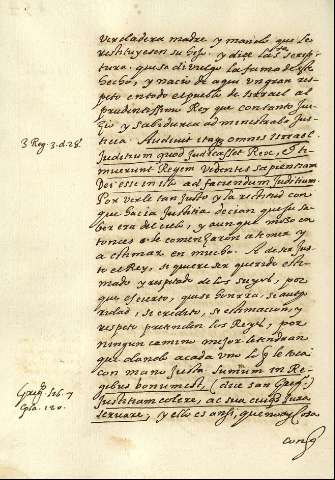 verdadera madre y mandó que se
restituyesen su hijo. y dize la scrip-
tura. que se divulgo la fama de este
hecho, y nacio de aqui un gran res-
peto en todo el pueblo de Israel al
prudentissimo Rey que con tanto Jui-
zio y sabiduria administraba Jus-
ticia. Audivit itaqz omnis Israel
3 Reg. 3. d. 28.
Juditium quod Judicasset Rex, et ti-
muerunt Regem videntes sapientiam
Dei esse in illo ad faciendum Juditium.
Por verle tan Justo y la rectitud con
que hacia Justitia decian que su sa-
ber era del cielo, y aunque moso en-
tonces le començaron a temer y
a estimar en mucho. A de ser Jus-
to el Rey, si quiere ser querido esti-
mado y respetado de los suyos, por
que es cierto, que si honrra, si auto-
ridad, si credito, si estimacion, y
respeto pretenden los Reyes, por
ningun camino mejor le tendran
que dando a cada uno lo q le toca
con mano Justa. Sumum in Re-
gibus bonum est, (dice san Greg.)
Greg. lib. 7
Epla. 120.
Justitiam colere, ac sua cuiqz Jura
servare, y ello es ansi, que no ay cosa
con q